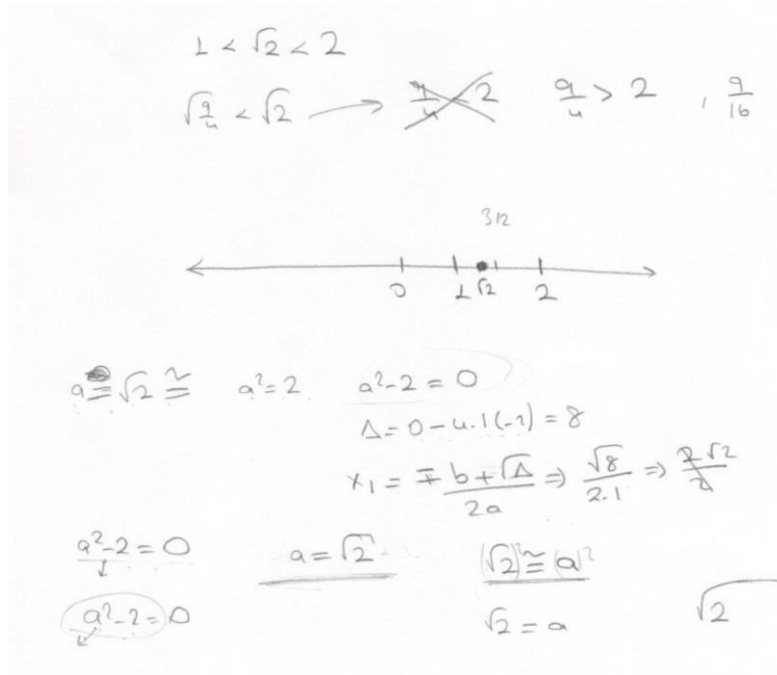 1 < √2 < 2
√9/4 < √2 → 9/4 < 2 9/4 > 2 , 9/16
3/2
0 1 √2 2
a = √2 ≅ a² = 2 a² - 2 = 0
Δ = 0 - 4.1(-2) = 8
x₁ = ∓ b + √Δ / 2a ⇒ √8 / 2.1 ⇒ 2√2 / 2
a² - 2 = 0 a = √2 (√2)² ≅ (a)²
a² - 2 = 0 √2 = a √2